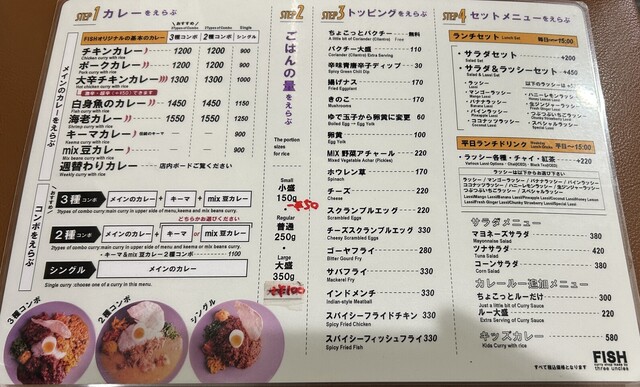 STEP1 カレーをえらぶ
おすすめ!
3種コンボ 2種コンボ シングル
3Types of Combo 2Types of Combo Single
メインのカレーをえらぶ
FISHオリジナルの基本のカレー
チキンカレー 1200 1200 900
Chicken curry with rice
ポークカレー 1200 1200 900
Pork curry with rice
大辛チキンカレー 1300 1300 1000
Hot chicken curry with rice
白身魚のカレー 1450 1450 1150
海老カレー 1550 1550 1250
Shrimp curry with rice
キーマカレー - - 900
Keema curry with rice
mix豆カレー - - 900
Mix beans curry with rice
週替わりカレー 店内ボードご覧ください
Weekly curry with rice
コンボをえらぶ
おすすめ!
3種コンボ メインのカレー + キーマ + mix豆カレー
3types of combo curry:main curry in upper side of menu,keema and mix beans curry.
どちらかお選びください
2種コンボ メインのカレー + キーマ or mix豆カレー
2types of combo curry:main curry in upper side of menu and keema or mix beans curry.
・キーマ&mix豆カレー2種コンボ
シングル メインのカレー
Single curry :choose one of a curry in this menu.
3種コンボ
2種コンボ
シングル
STEP2
ごはんの量をえらぶ
The portion
sizes
for rice
Small
小盛
150g
-¥50
Regular
普通
250g
Large
大盛
350g
+¥100
STEP3 トッピングをえらぶ
ちょこっとパクチー 無料
A little bit of Coriander (Cilantro) Free
パクチー大盛 110
Coriander (Cilantro) Extra Serving
辛味青唐辛子ディップ 30
Spicy Green Chili Dip
揚げナス 170
Fried Eggplant
きのこ 170
Mushrooms
ゆで玉子から卵黄に変更 60
Boiled Egg → Egg Yolk
卵黄 100
Egg Yolk
MIX 野菜アチャール 220
Mixed Vegetable Achar (Pickles)
ホウレン草 170
Spinach
チーズ 220
Cheese
スクランブルエッグ 220
Scrambled Eggs
チーズスクランブルエッグ 330
Cheesy Scrambled Eggs
ゴーヤフライ 280
Bitter Gourd Fry
サバフライ 330
Mackerel Fry
インドメンチ 330
Indian-style Meatball
スパイシーフライドチキン 330
Spicy Fried Chicken
スパイシーフィッシュフライ 330
Spicy Fried Fish
STEP4 セットメニューをえらぶ
ランチセット Lunch Set 毎日〜15:00
・サラダセット +200
Salad Set
・サラダ&ラッシーセット +450
Salad & Lassi Set
以下のラッシーは+
・ラッシー
Lassi
・マンゴーラッシー
Mango Lassi
・バナナラッシー
Banana Lassi
・パインラッシー
Pineapple Lassi
・ココナッツラッシー
Coconut Lassi
・ハニーレモンラッシー
・生ジンジャーラッシー
・つぶつぶいちごラッシー
・スペシャルラッシー
平日ランチドリンク 平日〜15:00
・ラッシー各種・チャイ・紅茶 +220
ラッシーは以下からお選び下さい
ラッシー / マンゴーラッシー / バナナラッシー / パインラッシー
ココナッツラッシー / ハニーレモンラッシー / 生ジンジャーラッシー
つぶつぶいちごラッシー / スペシャルラッシー
サラダメニュー
マヨネーズサラダ 380
Mayonnaise Salad
ツナサラダ 420
Tuna Salad
コーンサラダ 380
Corn Salad
カレールー追加メニュー
ちょこっとルーだけ 300
Just a Little Bit of Curry Sauce
ルー大盛 220
Extra Serving of Curry Sauce
キッズカレー 580
Kids Curry with rice
すべて税込価格となります
FISH
curry shop made by
three uncles